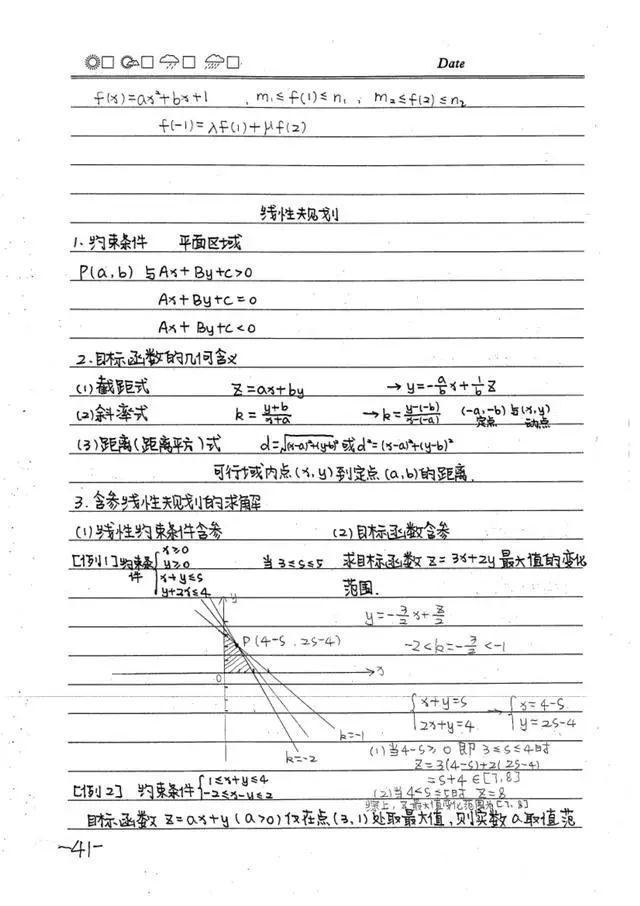 Date
f(x)=ax²+bx+1 , m₁≤f(1)≤n₁ , m₂≤f(2)≤n₂
f(-1)=λf(1)+μf(2)
线性规划
1. 约束条件 平面区域
P(a,b) 与Ax+By+c>0
Ax+By+c=0
Ax+By+c<0
2.目标函数的几何含义
(1)截距式 Z=ax+by →y=-a/b x+1/b Z
(2)斜率式 k=(y+b)/(x+a) →k=(y-(-b))/(x-(-a)) (-a,-b)与(x,y)
定点 动点
(3)距离(距离平方)式 d=√(x-a)²+(y-b)² 或d²=(x-a)²+(y-b)²
可行域内点(x,y)到定点(a,b)的距离.
3.含参线性规划的求解
(1)线性约束条件含参 (2)目标函数含参
[例1]约束条件{x≥0 当3≤s≤5 求目标函数z=3x+2y最大值的变化
y≥0
x+y≤s
y+2x≤4 范围.
y
y=-3/2 x+z/2
P(4-s,2s-4) -2<k=-3/2<-1
0 x
{x+y=s → {x=4-s
2x+y=4 y=2s-4
k=-1
k=-2
(1)当4-s≥0即3≤s≤4时
Z=3(4-s)+2(2s-4)
=s+4∈[7,8]
[例2] 约束条件{1≤x+y≤4
-2≤x-y≤2
(2)当4<s≤5时 Z=8
综上,Z最大值变化范围为[7,8]
目标函数z=ax+y(a>0)仅在点(3,1)处取最大值,则实数a取值范
-41-